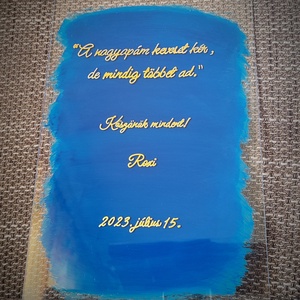 "A nagyapám keveset kér,
de mindig többet ad."
Köszönök mindent!
Roxi
2023. július 15.